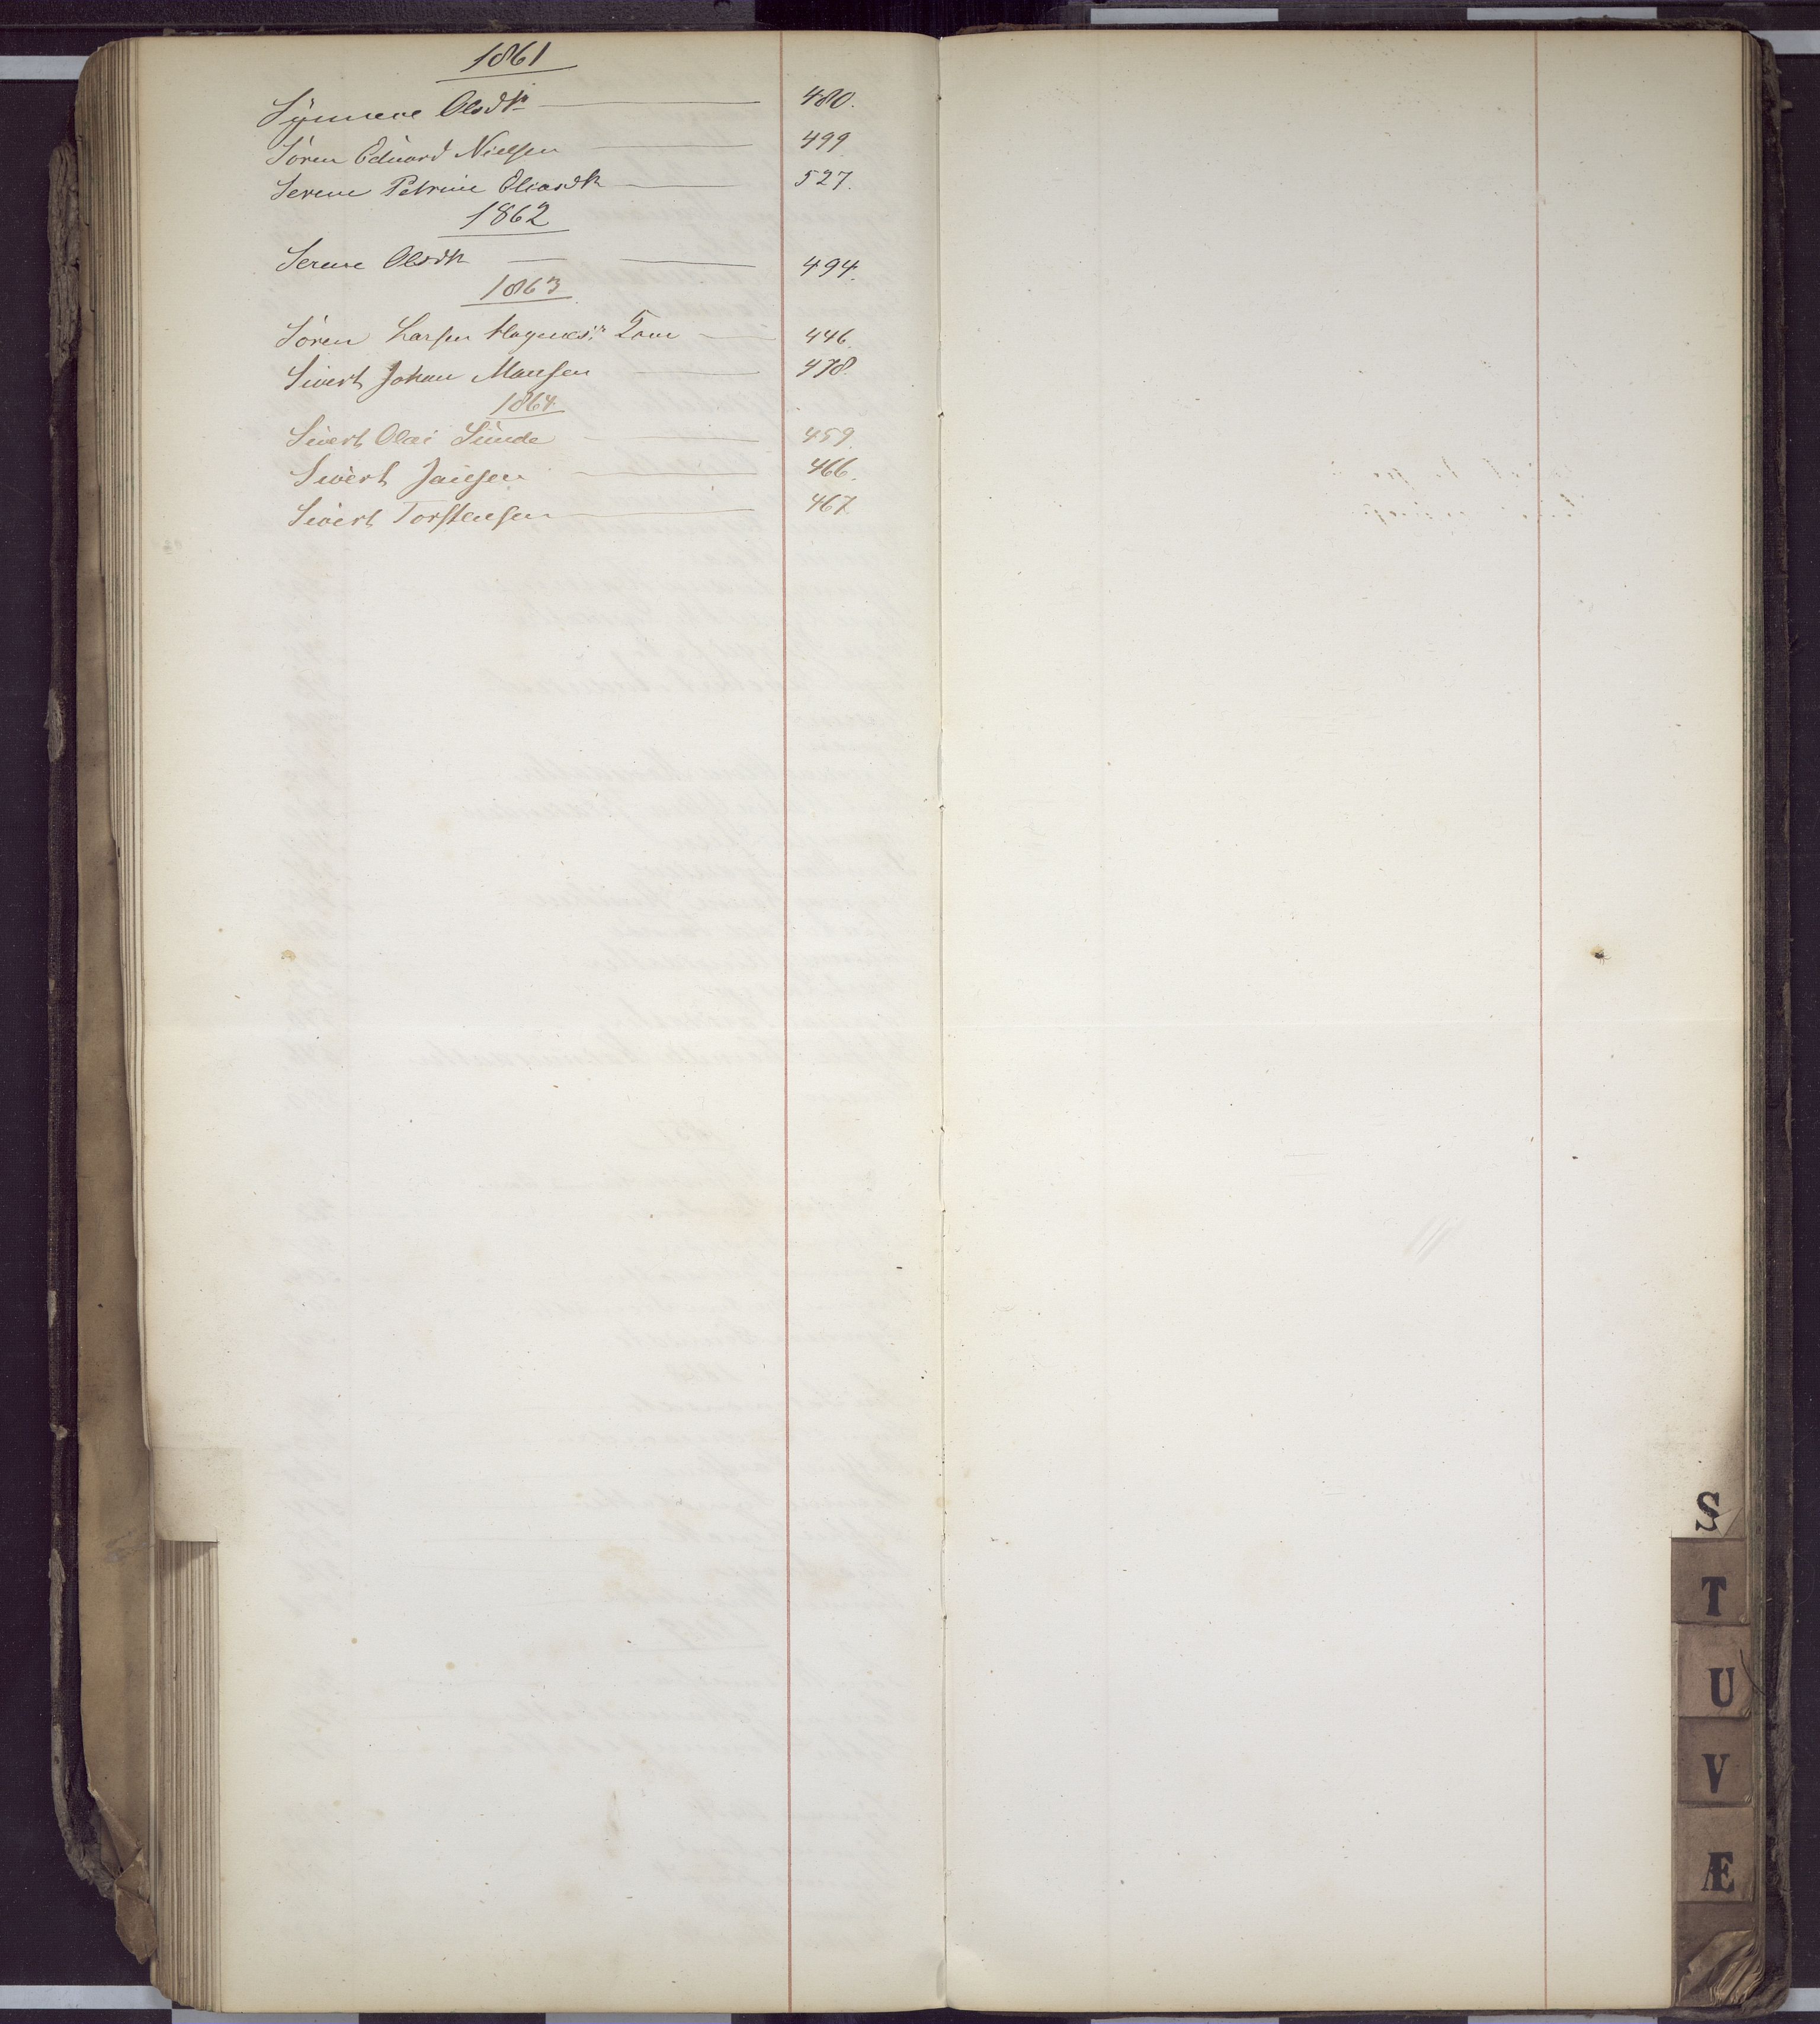 1861
Synneve Olsdtr 480.
Sören Eduard Nielsen 499
Serene Petrine Oliasdtr 527.
1862
Serene Olsdtr 494.
1863
Sören Larsen 446.
Sivert Johan Monsen 478.
1864.
Sivert Olai Sunde 459.
Sivert Jansen 466.
Sivert Torstensen 467
S
T
U
V
Æ